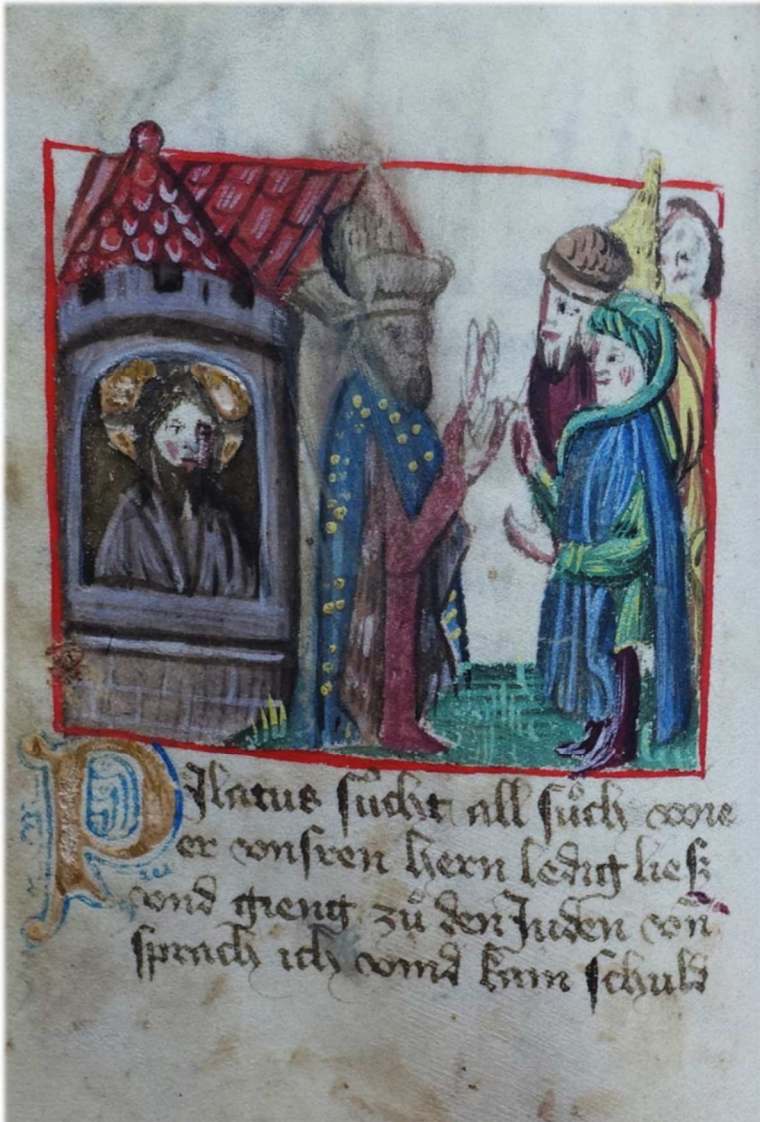 Pilatus sücht all süch wie
er vnsren hern ledig ließ
vnd gieng zů den Juden vn̄
sprach ich vind kain schuld